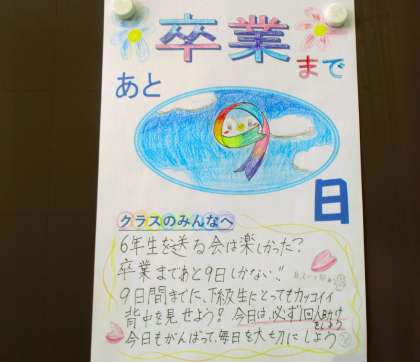 卒業まで
あと
9
日
クラスのみんなへ
6年生を送る会は楽しかった?
卒業まであと9日しかない!!
9日間までに、下級生にとってもカッコイイ
背中を見せよう? 今日は、必ず1回人助け
をしよう
今日もがんばって、毎日を大切にしよう